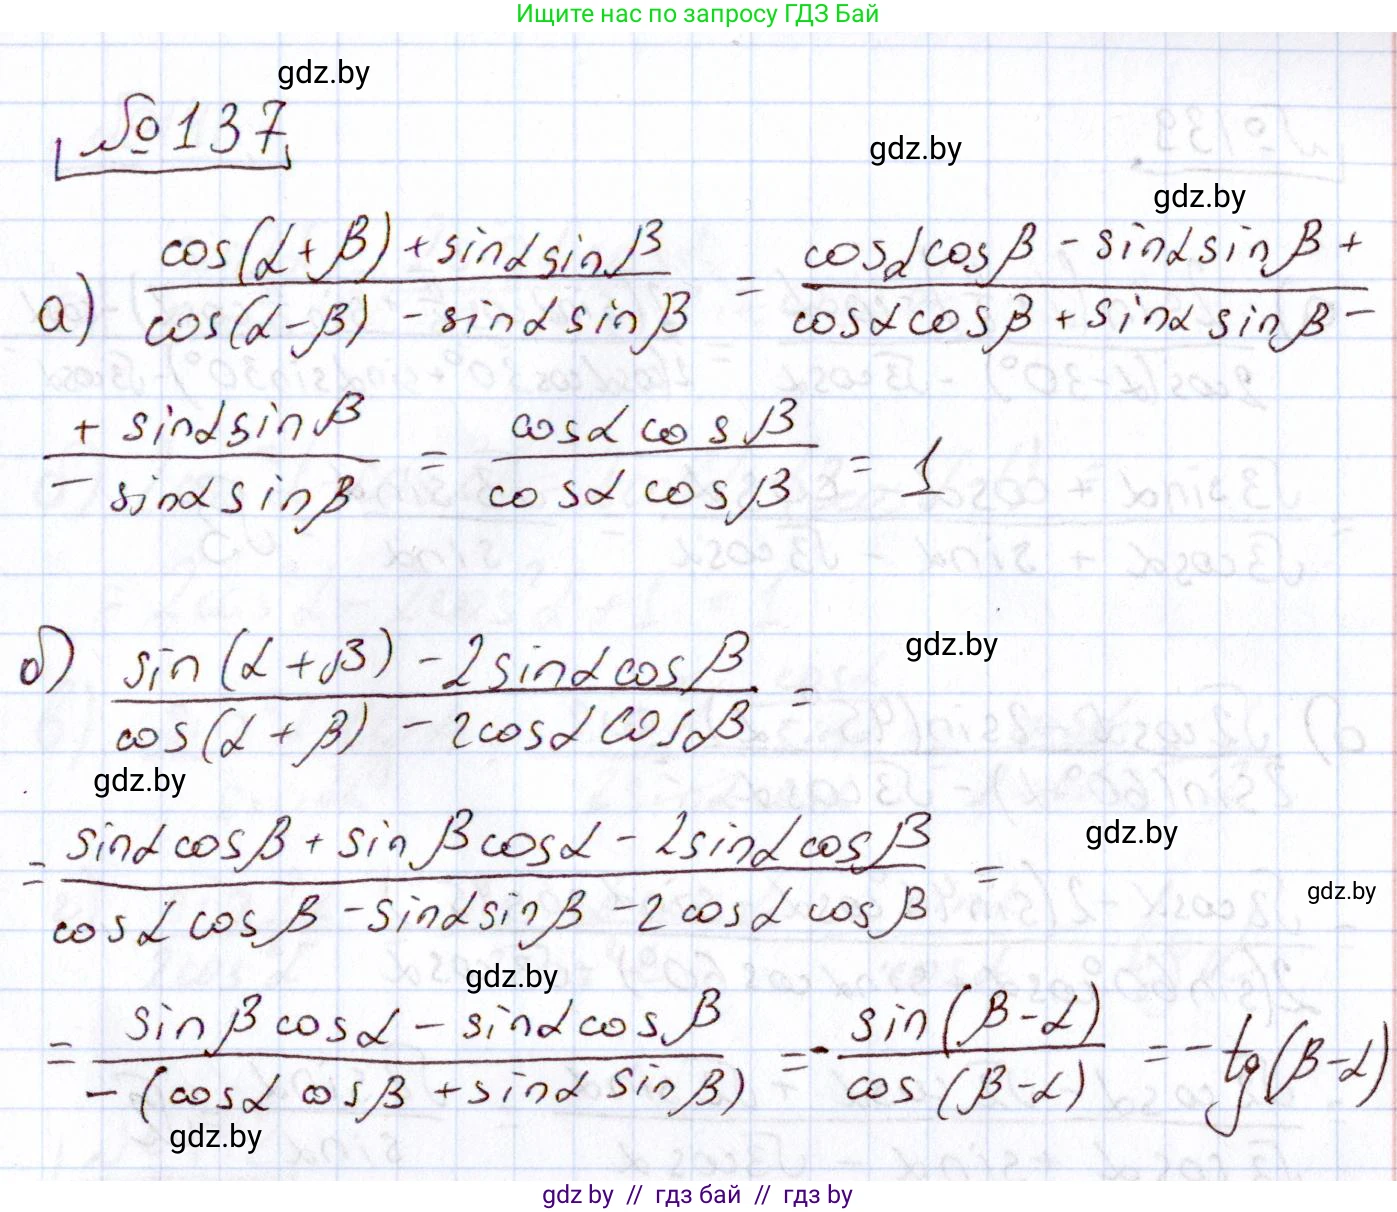 Ищите нас по запросу ГДЗ Бай
gdz.by
№137
gdz.by
gdz.by
а) (cos(α+β)+sinαsinβ)/(cos(α-β)-sinαsinβ) = (cosαcosβ-sinαsinβ+)/(cosαcosβ+sinαsinβ-)
(+sinαsinβ)/(-sinαsinβ) = (cosαcosβ)/(cosαcosβ) = 1
б) (sin(α+β)-2sinαcosβ)/(cos(α+β)-2cosαcosβ) =
gdz.by
gdz.by
= (sinαcosβ+sinβcosα-2sinαcosβ)/(cosαcosβ-sinαsinβ-2cosαcosβ) =
gdz.by
gdz.by
gdz.by
= (sinβcosα-sinαcosβ)/(-(cosαcosβ+sinαsinβ)) = -sin(β-α)/cos(β-α) = -tg(β-α)
gdz.by
gdz.by // гдз бай // гдз by